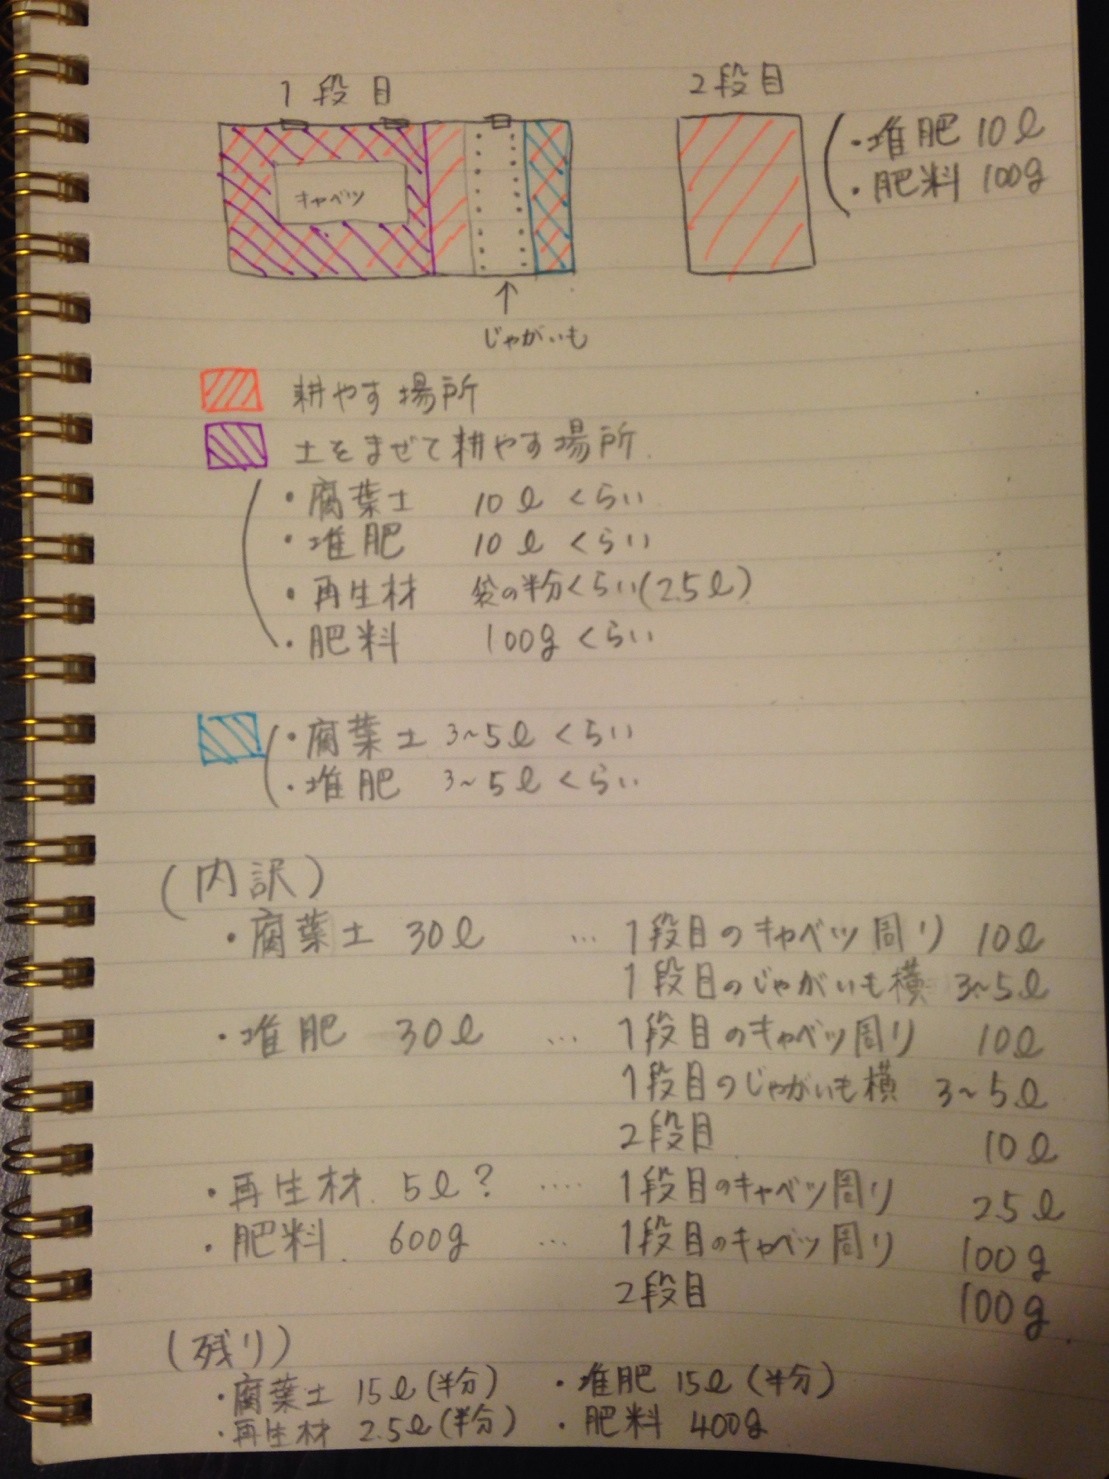 1段目
2段目
・堆肥 10ℓ
・肥料 100g
キャベツ
じゃがいも
耕やす場所
土をまぜて耕やす場所.
・腐葉土 10ℓ くらい
・堆肥 10ℓ くらい
・再生材 袋の半分くらい(2.5ℓ)
・肥料 100g くらい
・腐葉土 3~5ℓ くらい
・堆肥 3~5ℓ くらい
(内訳)
・腐葉土 30ℓ … 1段目のキャベツ周り 10ℓ
1段目のじゃがいも横 3~5ℓ
・堆肥 30ℓ … 1段目のキャベツ周り 10ℓ
1段目のじゃがいも横 3~5ℓ
2段目 10ℓ
・再生材. 5ℓ? .... 1段目のキャベツ周り 2.5ℓ
・肥料. 600g … 1段目のキャベツ周り 100g
2段目 100g
(残り)
・腐葉土 15ℓ(半分) ・堆肥 15ℓ(半分)
・再生材 2.5ℓ(半分) ・肥料 400g